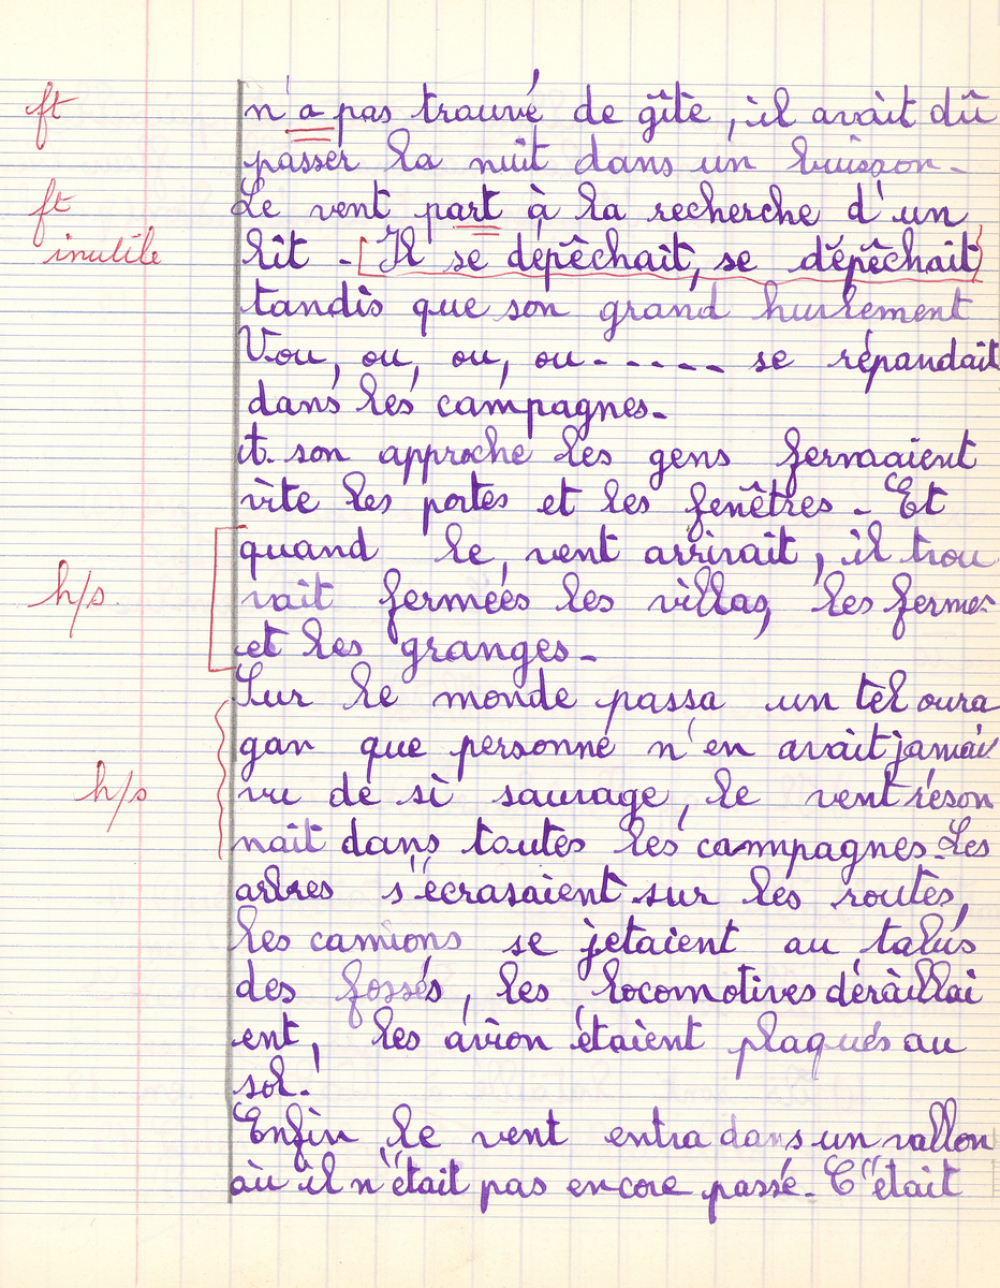 ft n'a pas trouvé de gîte, il avait dû
passer la nuit dans un buisson.
ft Le vent part à la recherche d'un
inutile lit. [Il se dépêchait, se dépêchait]
tandis que son grand hurlement
Vou, ou, ou, ou..... se répandait
dans les campagnes.
A son approche les gens fermaient
vite les portes et les fenêtres. Et
quand le vent arrivait, il trou
h/s vait fermées les villas, les fermes
et les granges.
Sur le monde passa un tel oura
gan que personne n'en avait jamais
h/s vu de si sauvage, le vent réson
nait dans toutes les campagnes. Les
arbres s'écrasaient sur les routes,
les camions se jetaient au talus
des fossés, les locomotives déraillai
ent, les avion étaient plaqués au
sol.
Enfin le vent entra dans un vallon
où il n'était pas encore passé. C'était